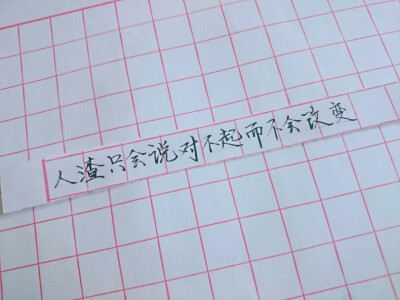 人渣只会说对不起而不会改变